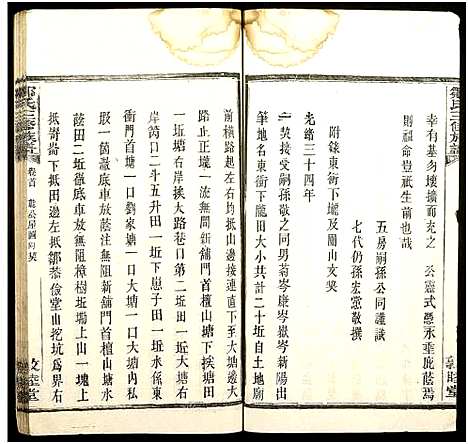 鄒氏三修族譜
幸有基勿壞擴而充之　公靈式憑永垂庇蔭焉
則祖命豈祇生前也哉
五房嗣孫公同謹識
七代仍孫宏燾敬撰
附錄東衝下壠及關山文契
光緒三十四年
一契接受嗣孫敬之同男菊岑康岑嶽岑新陽出
筆地名東衝下壠田大小共計二十坵自土地廟
敦睦堂
前橫路起左右均抵山邊接連直下左邊大
路止正壠一派無間新舖門首檀山塘下挨大塘田
一坵塘右岸挨大路巷口第二坵田一坵大塘右
岸筲口二斗五升田一坵下崽子田一坵水係東
衝門首大塘一口劉家塘一口大塘一口檀山塘
蔭田二坵徹底車放蔭注無阻新舖門首檀山塘
一箇徹底車放無阻樟樹坵塝上山一塊上
抵嵜崙下抵田邊左抵鄒恭儉堂山挖坑爲界右
鄒氏三修族譜
卷首
敦睦堂